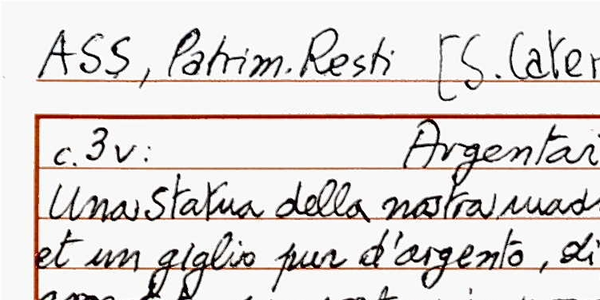 ASS, Patrim. Resti [S. Cater
c. 3v: Argentar
Una statua della nostra mad
et un giglio pur d'argento, di